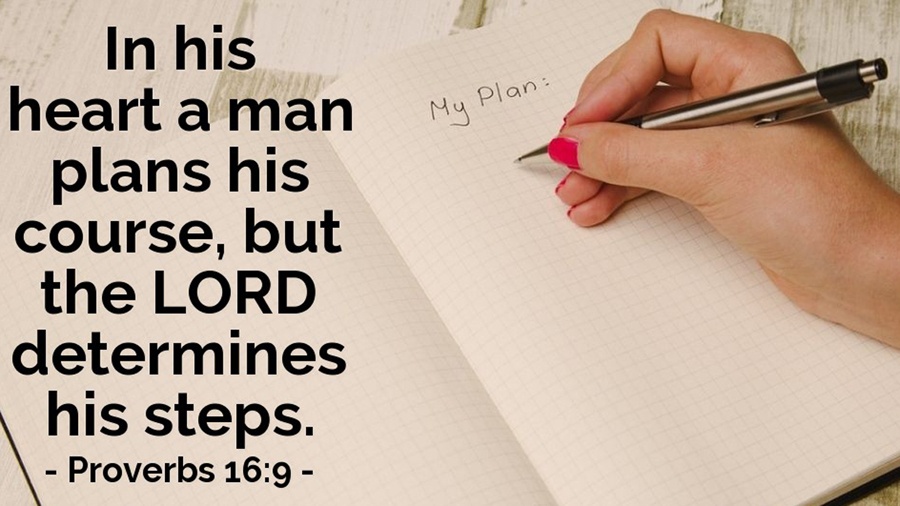 In his
heart a man
plans his
course, but
the LORD
determines
his steps.
- Proverbs 16:9 -
My Plan: